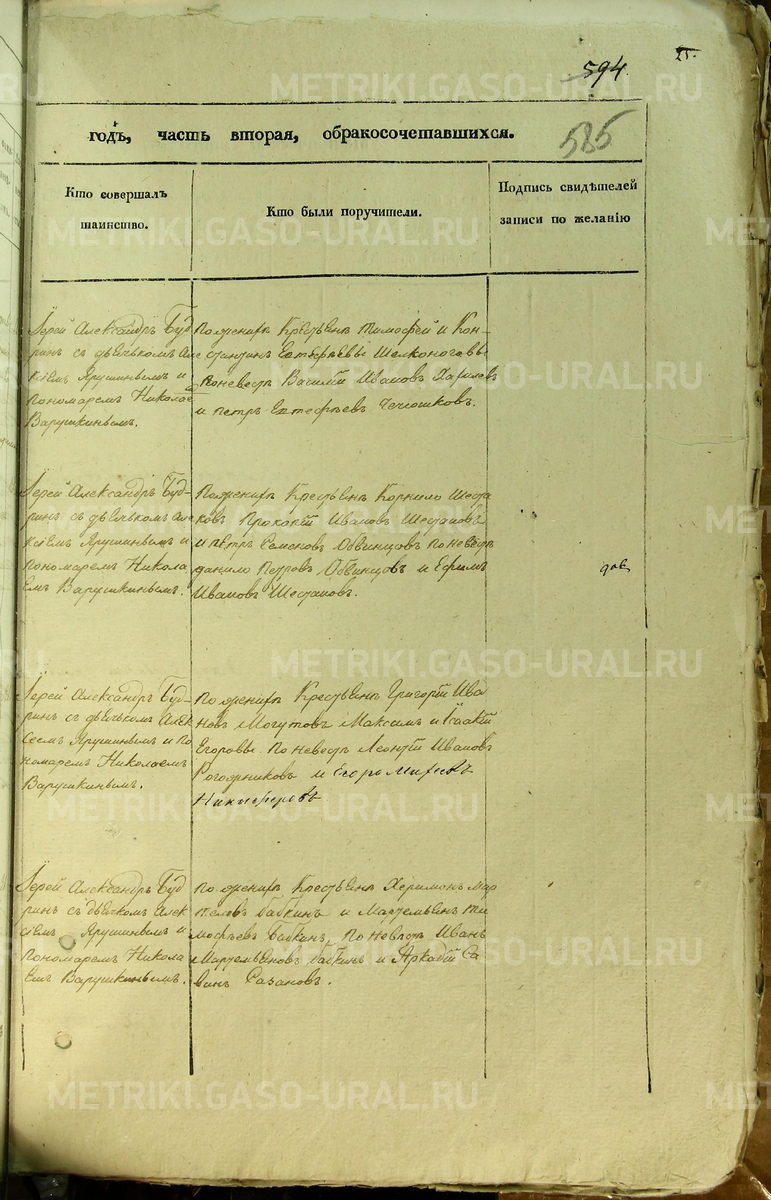 594.
25.
585
годъ, часть вторая, обракосочетавшихся.
Кто совершалъ
таинство.
Кто были поручители.
Подпись свидѣтелей
записи по желанію
Іерей Александръ Буд
ринъ съ дьячькомъ Але
ксіемъ Ярушинымъ и
пономаремъ Николае
мъ
Варушкинымъ.
По женихѣ Крестьяне Тимофей и Кон-
стантинъ Евтефьевы Шелконоговы
По невестѣ Василій Ивановъ
и Петръ Евтефьевъ Чечюшковъ.
Іерей Александръ Буд-
ринъ съ дьячькомъ Але
ксіемъ Ярушинымъ и
пономаремъ Никола
емъ Варушкинымъ.
По женихѣ Крестьяне Корнило Шеста
ковъ Прокопій Ивановъ Шестаковъ
и Петръ Семеновъ Обвинцовъ по невестѣ
Данило Петровъ Обвинцовъ и Ефимъ
Ивановъ Шестаковъ.
Іерей Александръ Буд-
ринъ съ дьячькомъ Алек
сеемъ Ярушинымъ и по
номаремъ Николаемъ
Варушкинымъ.
По женихѣ Крестьяне Григорій Ива
новъ Могутовъ Максимъ и Ісаакій
Егоровы. По невестѣ Леонтій Ивановъ
Рогожниковъ и Егоръ
Никифоровъ
Іерей Александръ Буд
ринъ съ дьячкомъ Алек
сіемъ Ярушинымъ и
пономаремъ Никола
емъ Варушкинымъ.
По женихѣ Крестьяне Мар
теловъ Бабкинъ и Мартемьянъ Ти
мофѣевъ Бабкинъ, По невестѣ Иванъ
Мартемьяновъ Бабкинъ и Аркадій Са
винъ Сазановъ.
METRIKI.GASO-URAL.RU